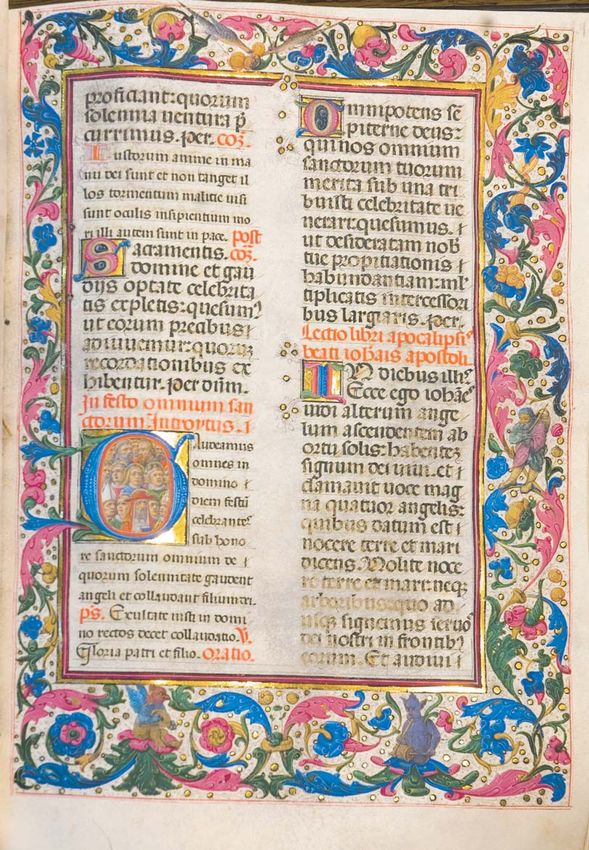 proficiant: quorum
solennia uentura p̄
currimus. per. coɜ.
Iustorum anime in ma
nu dei sunt et non tanget il
los tormentum malitie uisi
sunt oculis insipientium mo
ri illi autem sunt in pace. post
Sacramentis. coɜ.
domine et gau
dijs optate celebrita
tis expletis: quesum9
ut eorum precibus
adiuuemur: quorum
recordationibus ex
hibentur. per dūm.
In festo omnium san
ctorum Introytus.
Gaudeamus
omnes in
domino
diem festū
celebrantes
sub hono
re sanctorum omnium de
quorum solennitate gaudent
angeli et collaudant filium dei.
ps. Exultate iusti in domi
no rectos decet collaudatio. V.
Gloria patri et filio. Oratio.
Omnipotens sē
piterne deus:
qui nos omnium
sanctorum tuorum
merita sub una tri
buisti celebritate ue
nerari: quesumus.
ut desideratam nob
tue propitiationis
habundantiam: ml
tiplicatis intercessori
bus largiaris. per.
Lectio libri apocalipsis
beati iohānis apostoli.
In diebus illis
Ecce ego iohānes
uidi alterum ange
lum ascendentem ab
ortu solis: habentem
signum dei uiui. et
clamauit uoce mag
na quatuor angelis:
quibus datum est
nocere terre et mari
dicens. Nolite noce
re terre et mari: neq
arboribus: quo ad
usq signemus seruos
dei nostri in frontib
eorum. Et audiui